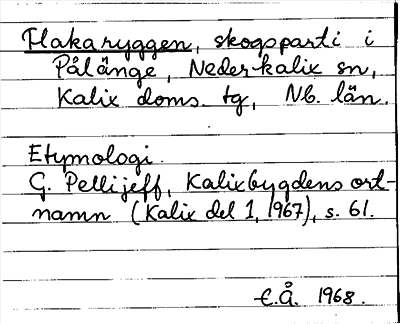 Flakaryggen, skogsparti i
Pålänge, Nederkalix sn,
Kalix doms. tg, Nb. län.
Etymologi.
G. Pellijeff, Kalixbygdens ort-
namn (Kalix del 1, 1967), s. 61.
E.Å. 1968.